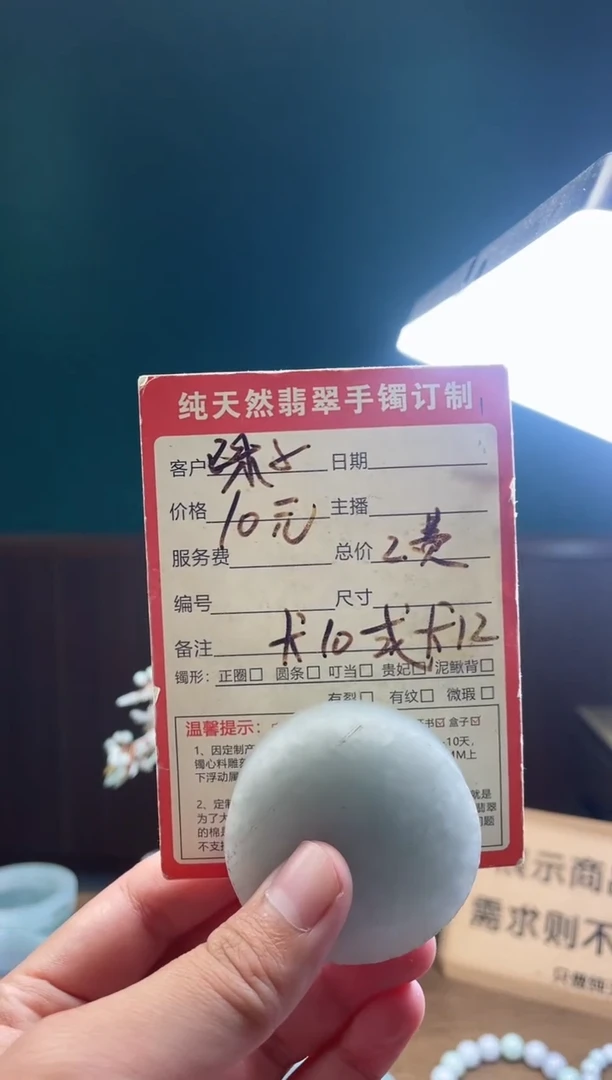 纯天然翡翠手镯订制
客户 日期
价格 10元 主播
服务费 总价 2.贵
编号 尺寸
备注 卡10或卡12
镯形： 正圈□ 圆条□ 叮当□ 贵妃□ 泥鳅背□
有裂□ 有纹□ 微瑕□
温馨提示： 证书☑ 盒子☑
1、因定制产 -10天，
镯心料雕刻 MM上
下浮动属
2、定制 就是
为了大 翡翠
的棉
不支持
展示商品
需求则不